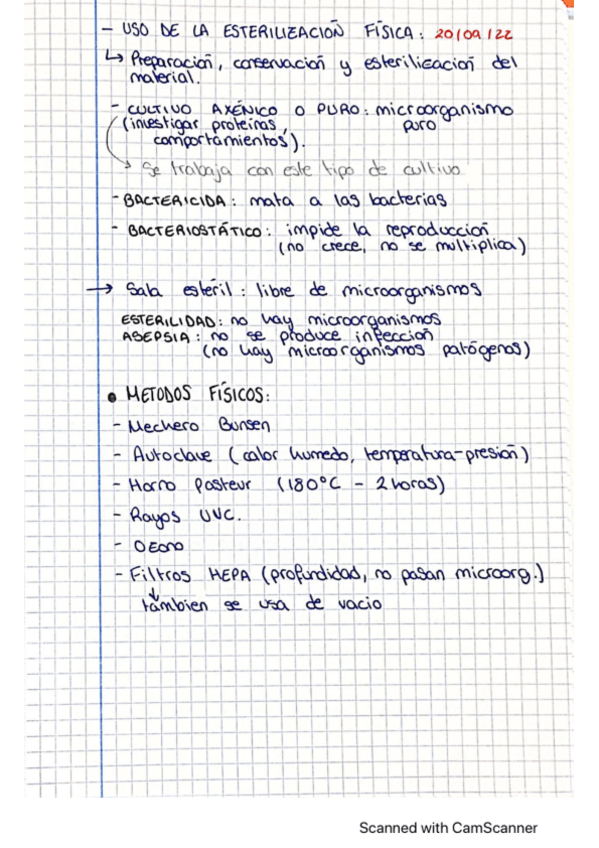 - USO DE LA ESTERILIZACIÓN FÍSICA: 20/09/22
↳ Preparación, conservación y esterilización del
material.
- CULTIVO AXÉNICO O PURO: microorganismo
(investigar proteínas, puro
comportamientos).
→ Se trabaja con este tipo de cultivo
- BACTERICIDA: mata a las bacterias
- BACTERIOSTÁTICO: impide la reproducción
(no crece, no se multiplica)
→ Sala estéril: libre de microorganismos
ESTERILIDAD: no hay microorganismos
ASEPSIA: no se produce infección
(no hay microorganismos patógenos)
• METODOS FÍSICOS:
- Mechero Bunsen
- Autoclave (calor humedo, temperatura-presión)
- Horno Pasteur (180°C - 2 horas)
- Rayos UVC.
- OZono
- Filtros HEPA (profundidad, no pasan microorg.)
↓
tambien se usa de vacio
Scanned with CamScanner